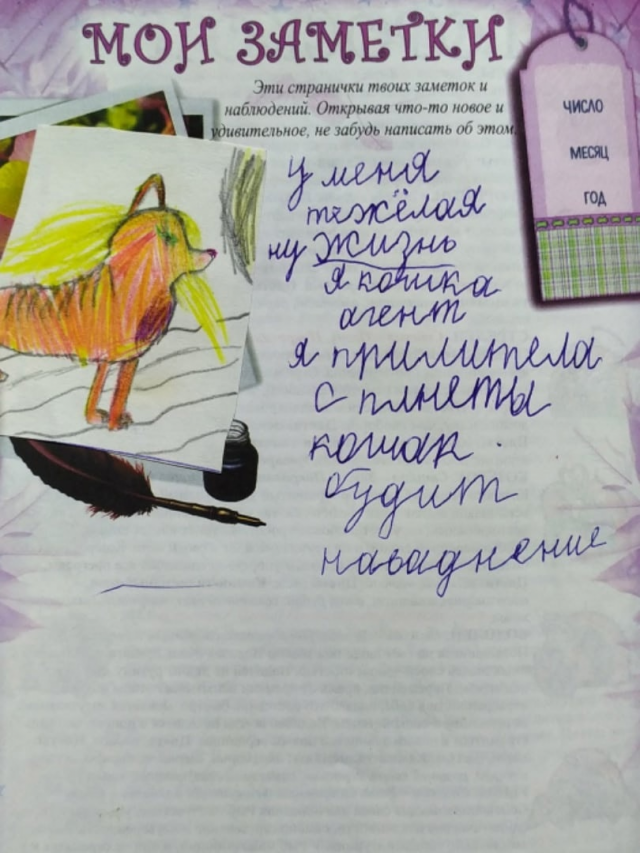 МОИ ЗАМЕТКИ
Эти странички твоих заметок и
наблюдений. Открывая что-то новое и
удивительное, не забудь написать об этом.
ЧИСЛО
МЕСЯЦ
ГОД
у меня
тежёлая
ну жизнь
я кошка
агент
я прилители
с плнеты
кошак.
будит
наваднение